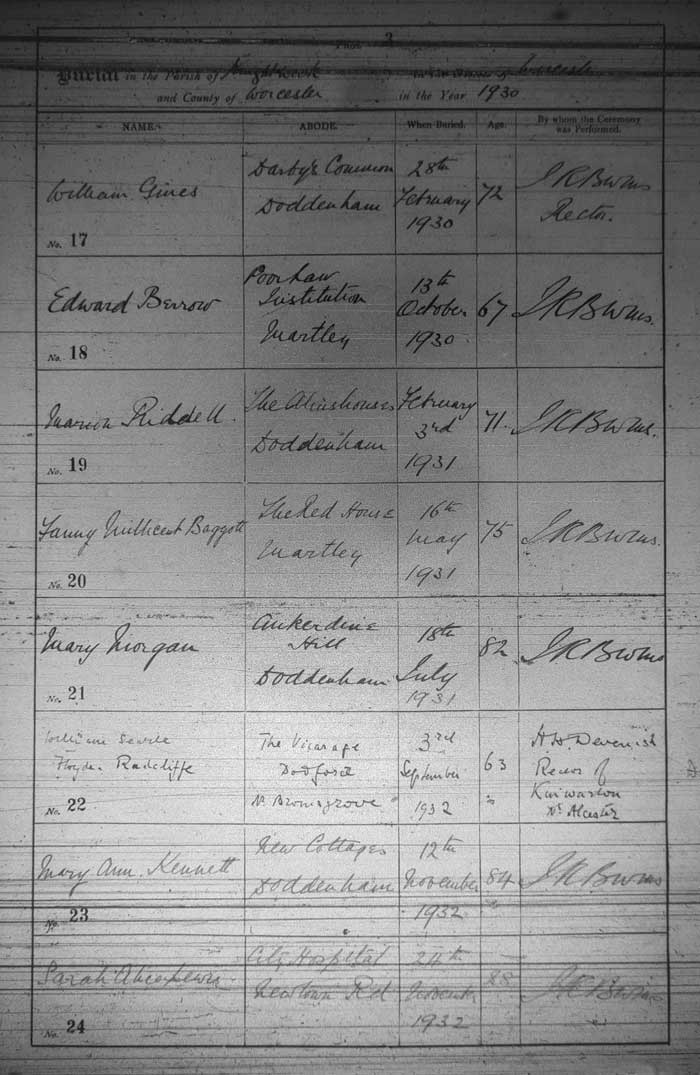 Page 3
Burial in the Parish of Knightwick in the Diocese of Worcester
and County of Worcester in the Year 1930
NAME. ABODE. When Buried. Age. By whom the Ceremony was Performed.
William Gines
Darby's Common
Doddenham
28th
February
1930
72
J R Burns
Rector.
No. 17
Edward Berrow
Poor Law
Institution
Martley
13th
October
1930
67
J R Burns.
No. 18
Marion Riddell.
The Almshouses
Doddenham
February
3rd
1931
71.
J R Burns.
No. 19
Fanny Millicent Baggott
The Red House
Martley
16th
May
1931
75
J R Burns.
No. 20
Mary Morgan
Ankerdine
Hill
Doddenham
18th
July
1931
82
J R Burns
No. 21
William Searle
Radcliffe
The Vicarage
Dodford
Nr Bromsgrove
3rd
September
1932
63
H.W. Devenish
Rector of
Kinwarton
Nr Alcester
No. 22
Mary Ann Kennett
New Cottages
Doddenham
12th
November
1932
84
J R Burns
No. 23
Sarah Alice Lewis
City Hospital
Newtown Rd
24th
November
1932
J R Burns
No. 24